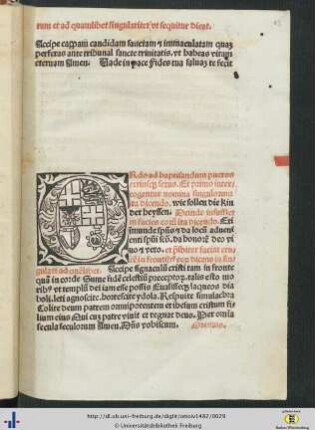 rum et ad quamlibet singulariter ut sequitur dicat.
Accipe cappam candidam sanctam et immaculatam quam
perferas ante tribunal sancte trinitatis. ut habeas vitam
eternam Amen. Vade in pace Fides tua saluum te fecit
Ordo ad baptisandum pueros
utriusque sexus. Et primo inter
rogantur nomina singulorum
ita dicendo. wie sollen die kin
der heyssen. Deinde insufflet
in facies dicendo. Exi
immunde spūs et da locum advenienti
spūi scō. da honorē deo vi
vo et vero.
gulariter ad quemlibet. Accipe signaculū cristi tam in fronte
quā in corde Sume fidē celestiū preceptorū. talis esto mo
ribꝰ ut templū dei iam esse possis Evasisseqꝫ laqueos dia
boli. leti agnoscite. horrescite ydola. Respuite simulachra
Colite deum patrem omnipotentem et ihesum cristum fi
lium eius Qui cum patre vivit et regnat deus. Per omnia
secula seculorum Amen. Dñs vobiscum.
http://dl.ub.uni-freiburg.de/diglit/
© Universitätsbibliothek Freiburg
Baden-Württemberg